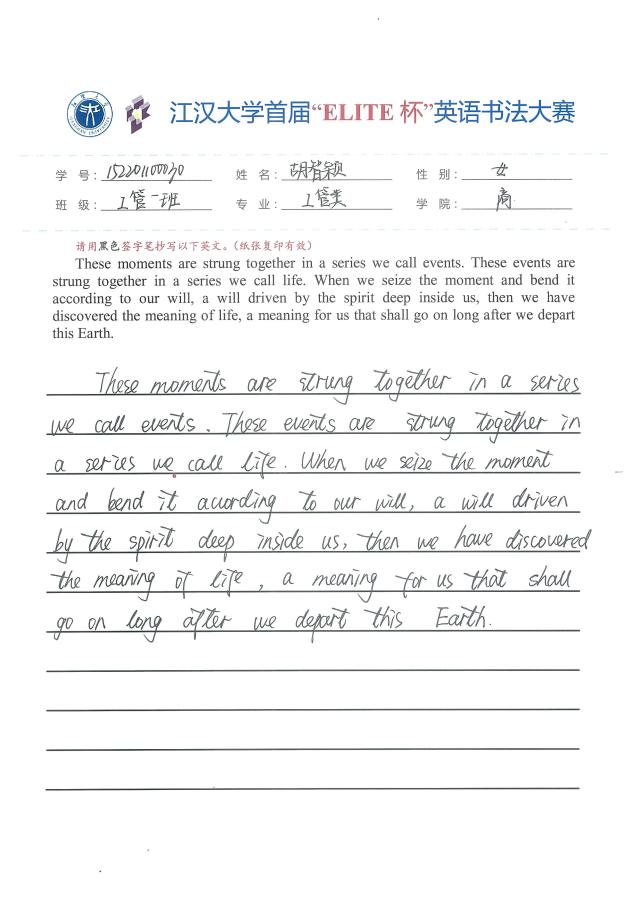 江汉大学首届“ELITE 杯”英语书法大赛
学 号：152201100030 姓 名：胡智颖 性 别：女
班 级：工管一班 专 业：工管类 学 院：商
请用黑色签字笔抄写以下英文。（纸张复印有效）
These moments are strung together in a series we call events. These events are
strung together in a series we call life. When we seize the moment and bend it
according to our will, a will driven by the spirit deep inside us, then we have
discovered the meaning of life, a meaning for us that shall go on long after we depart
this Earth.
These moments are strung together in a series
we call events. These events are strung together in
a series we call life. When we seize the moment
and bend it according to our will, a will driven
by the spirit deep inside us, then we have discovered
the meaning of life, a meaning for us that shall
go on long after we depart this Earth.